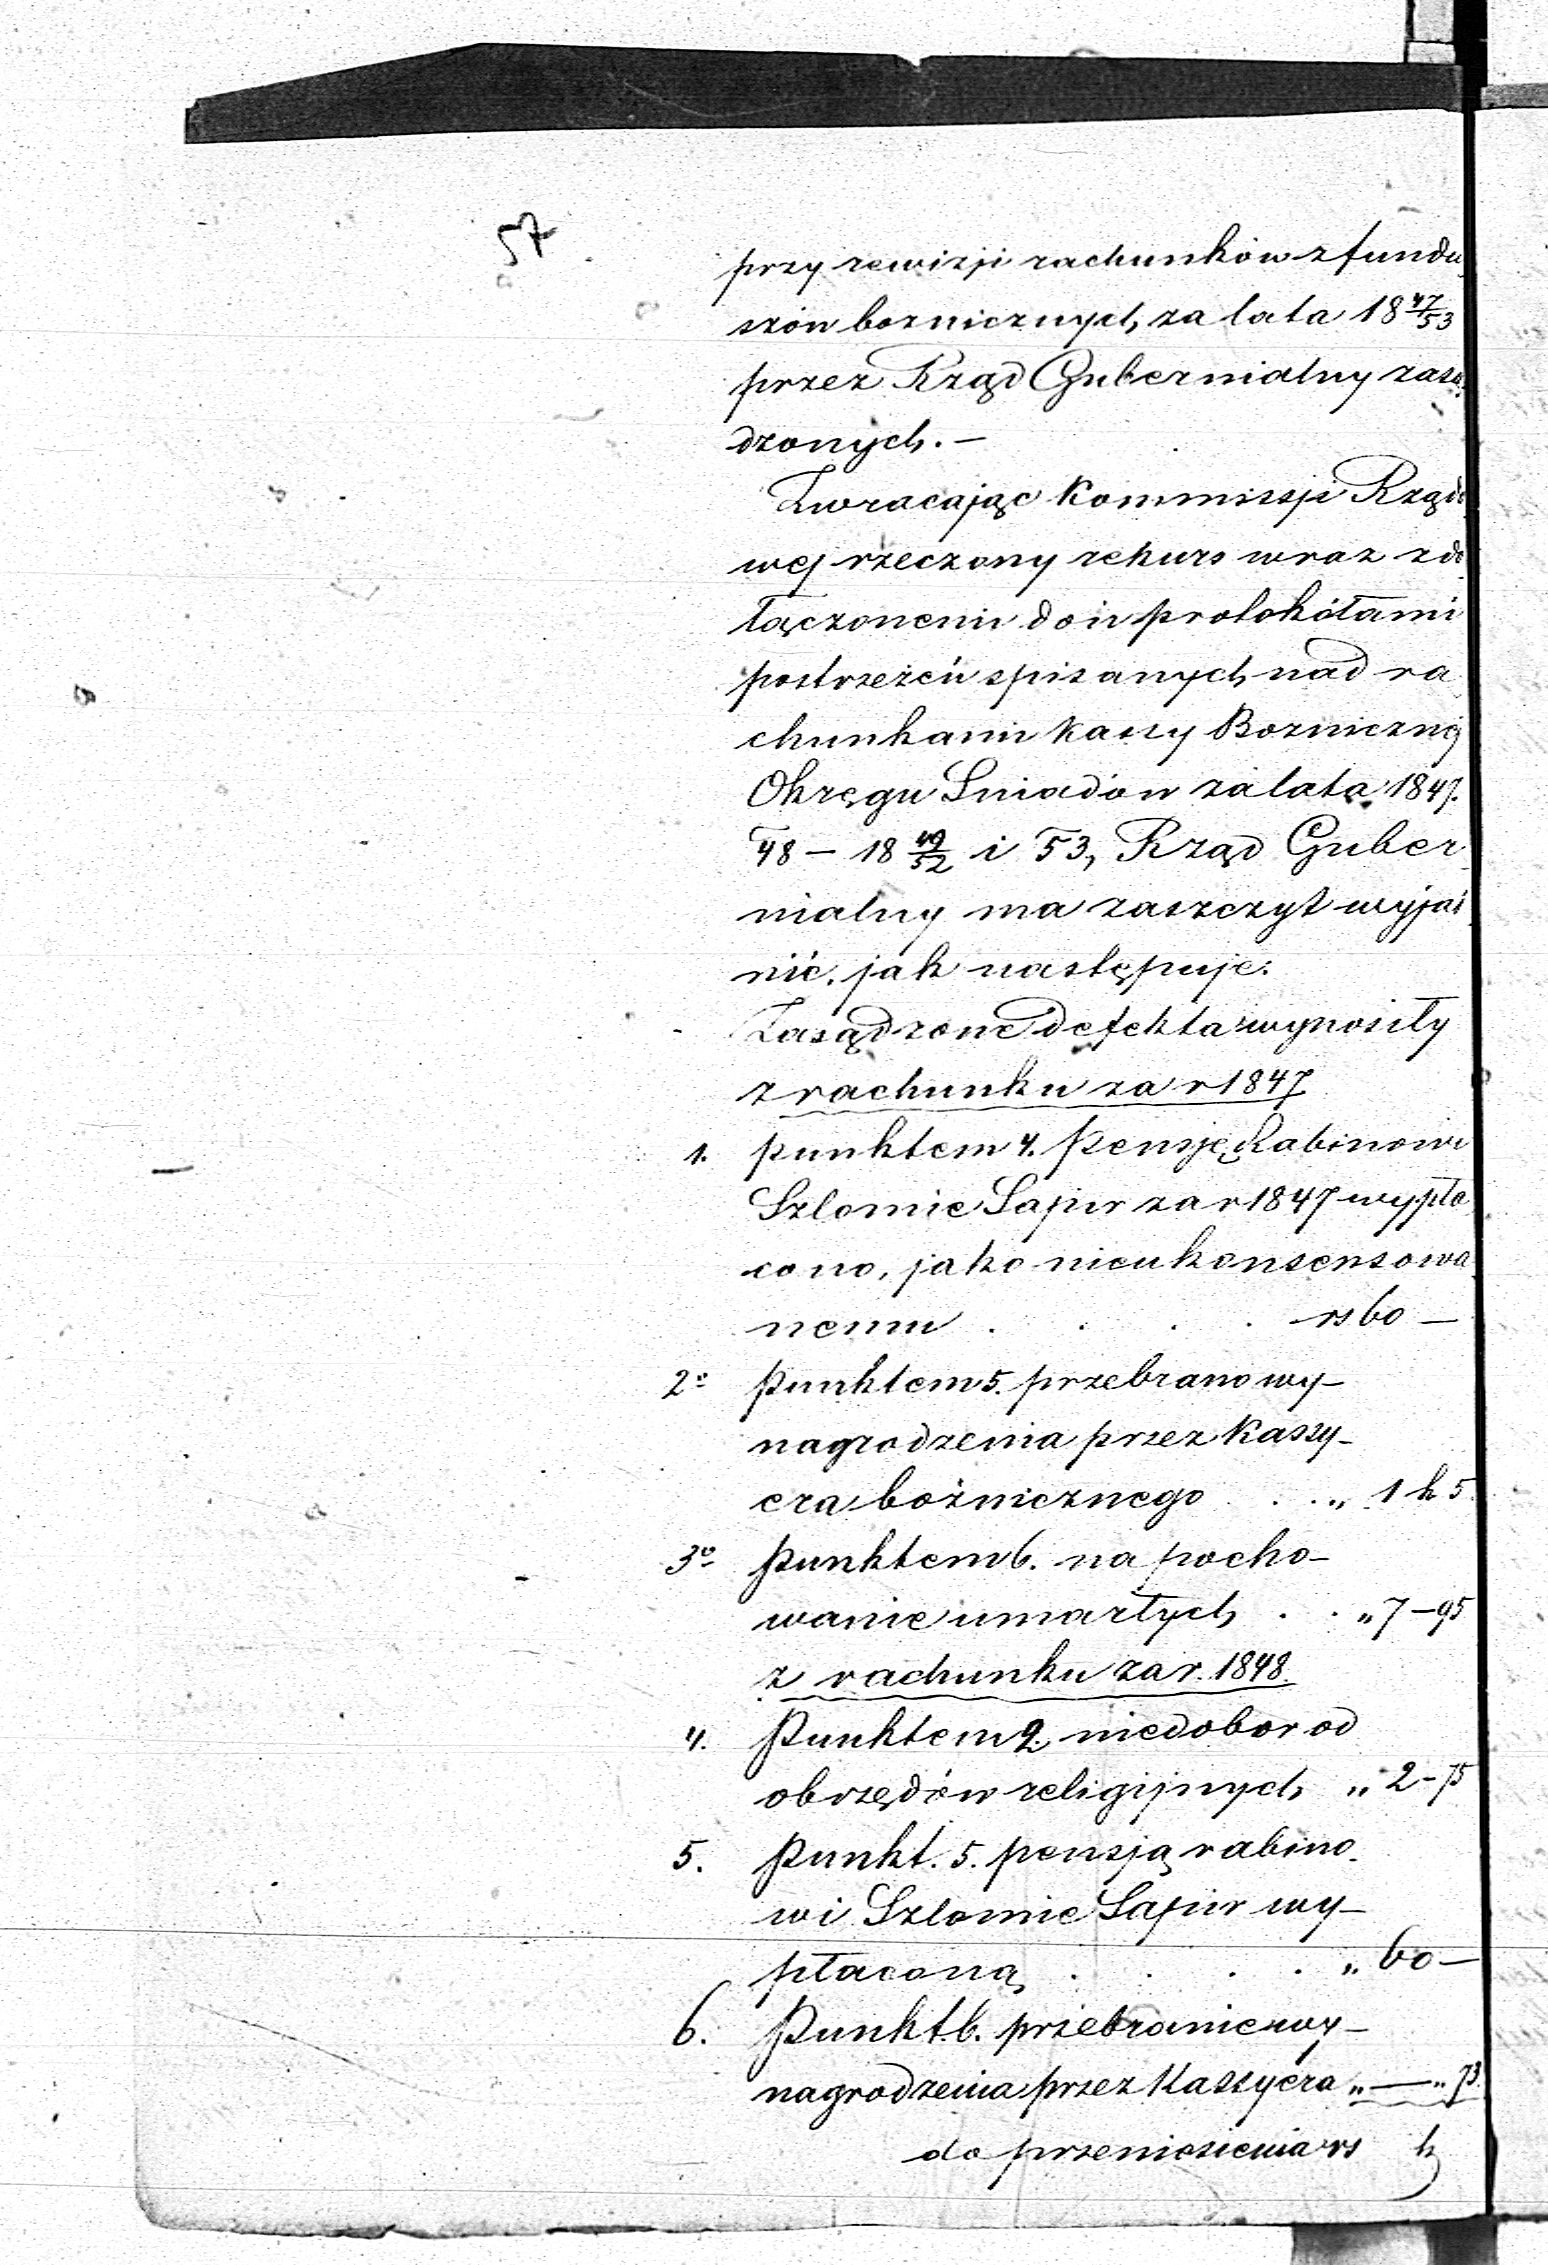 57
przy rewizji rachunków z fundu
szów bożnicznych za lata 18 47/53
przez Rząd Gubernialny zasą
dzonych. —
Zwracając Kommissji Rządo
wej rzeczony rekurs wraz z do
łączonemi doń protokółami
postrzeżeń spisanych nad ra
chunkami Kassy Boznicznej
Okręgu Sniadów za lata 1847.
48 — 18 49/52 i 53, Rząd Guber
nialny ma zaszczyt wyjaś
nić. jak następuje:
Zasądzone defekta wynosiły
z rachunku za r 1847
1. punktem 4. Pensję Rabinowi
Szlomie Sapir za r 1847 wypła
cono, jako nieukonsensowa
nemu . . . . rs 60 —
2o punktem 5. przebrano wy-
nagrodzenia przez Kassy-
era bożnicznego . . „ 1 k 5
3o Punktem 6. na pocho-
wanie umarłych . . „ 7 — 95
z rachunku za r. 1848.
4. Punktem 2. niedobor od
obrzędów religijnych „ 2 - 75
5. Punkt. 5. pensją rabino-
wi Szlomie Sapir wy-
płaconą . . . . „ 60 —
6. Punkt. 6. przebranie wy-
nagrodzenia przez Kassyera „ — „ 73.
do przeniesienia rs k